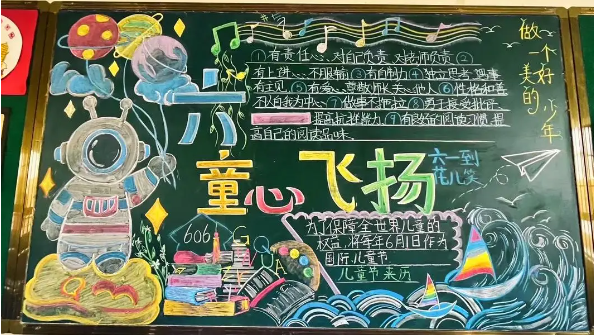 六一
童心飞扬
六一到
花儿笑
做一个好
美的少年
①有责任心、对自己负责 对老师负责 ②
有上进心、不服输 ③有自制力 ④独立思考 遇事
有主见 ⑤有爱心、尊敬师长、关心他人 ⑥性格和善
不以自我为中心 ⑦做事不拖拉 ⑧勇于接受批评
提高抗挫能力 ⑨有良好的阅读习惯 提
高自己的阅读品味.
606
为了保障全世界儿童的
权益,将每年6月1日作为
国际儿童节
儿童节来历